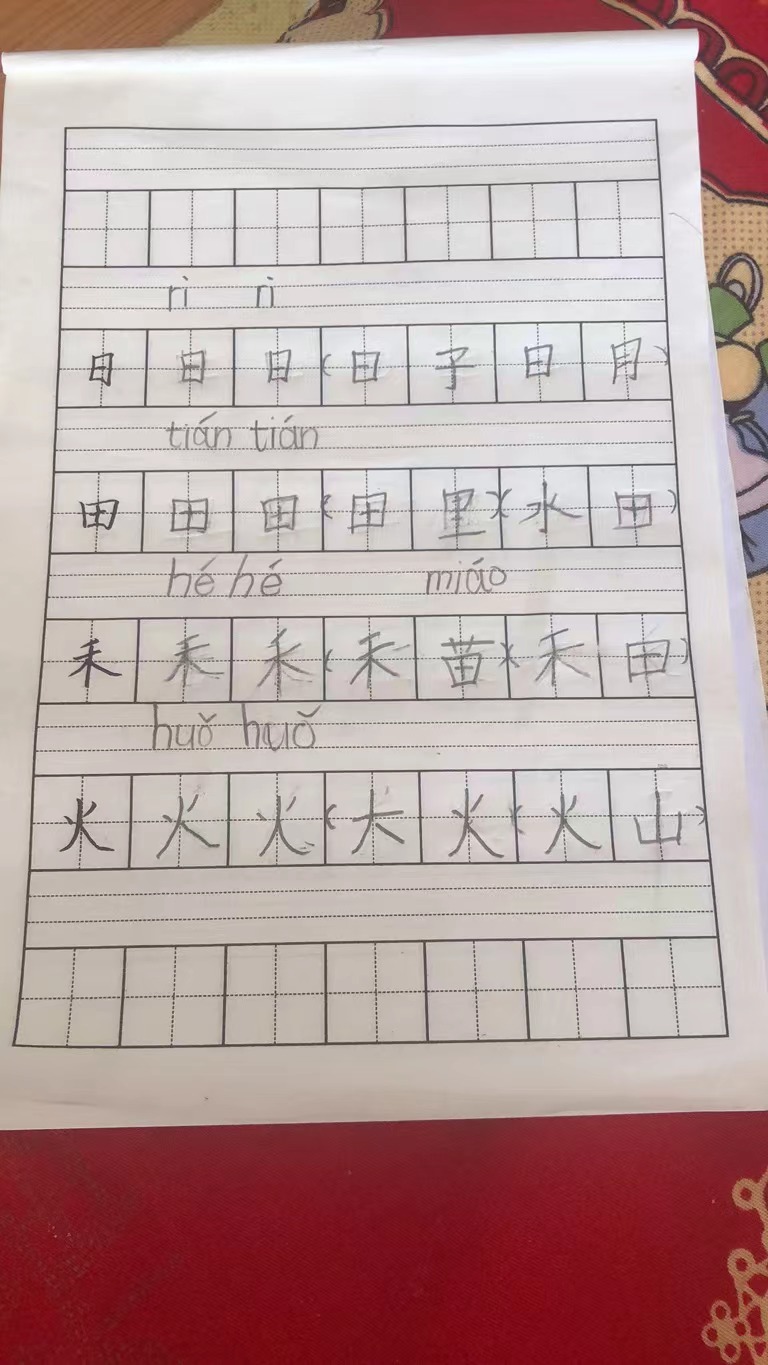 rì rì
日日日(日子日月)
tián tián
田田田(田里)(水田)
hé hé miáo
禾禾禾(禾苗)(禾田)
huǒ huǒ
火火火(大火(火山)